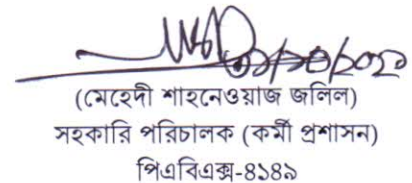 (মেহেদী শাহনেওয়াজ জলিল)
সহকারি পরিচালক (কর্মী প্রশাসন)
পিএবিএক্স-৪১৪৯